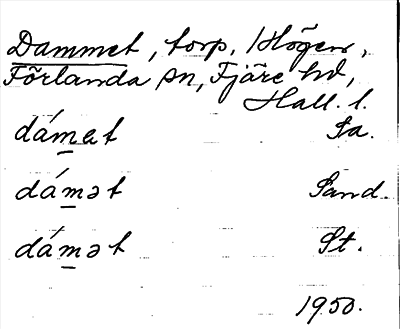 Dammet, torp, Högen,
Förlanda sn, Fjäre hd,
Hall. l.
dámet Sa.
dámət Sand.
dámət St.
1950.